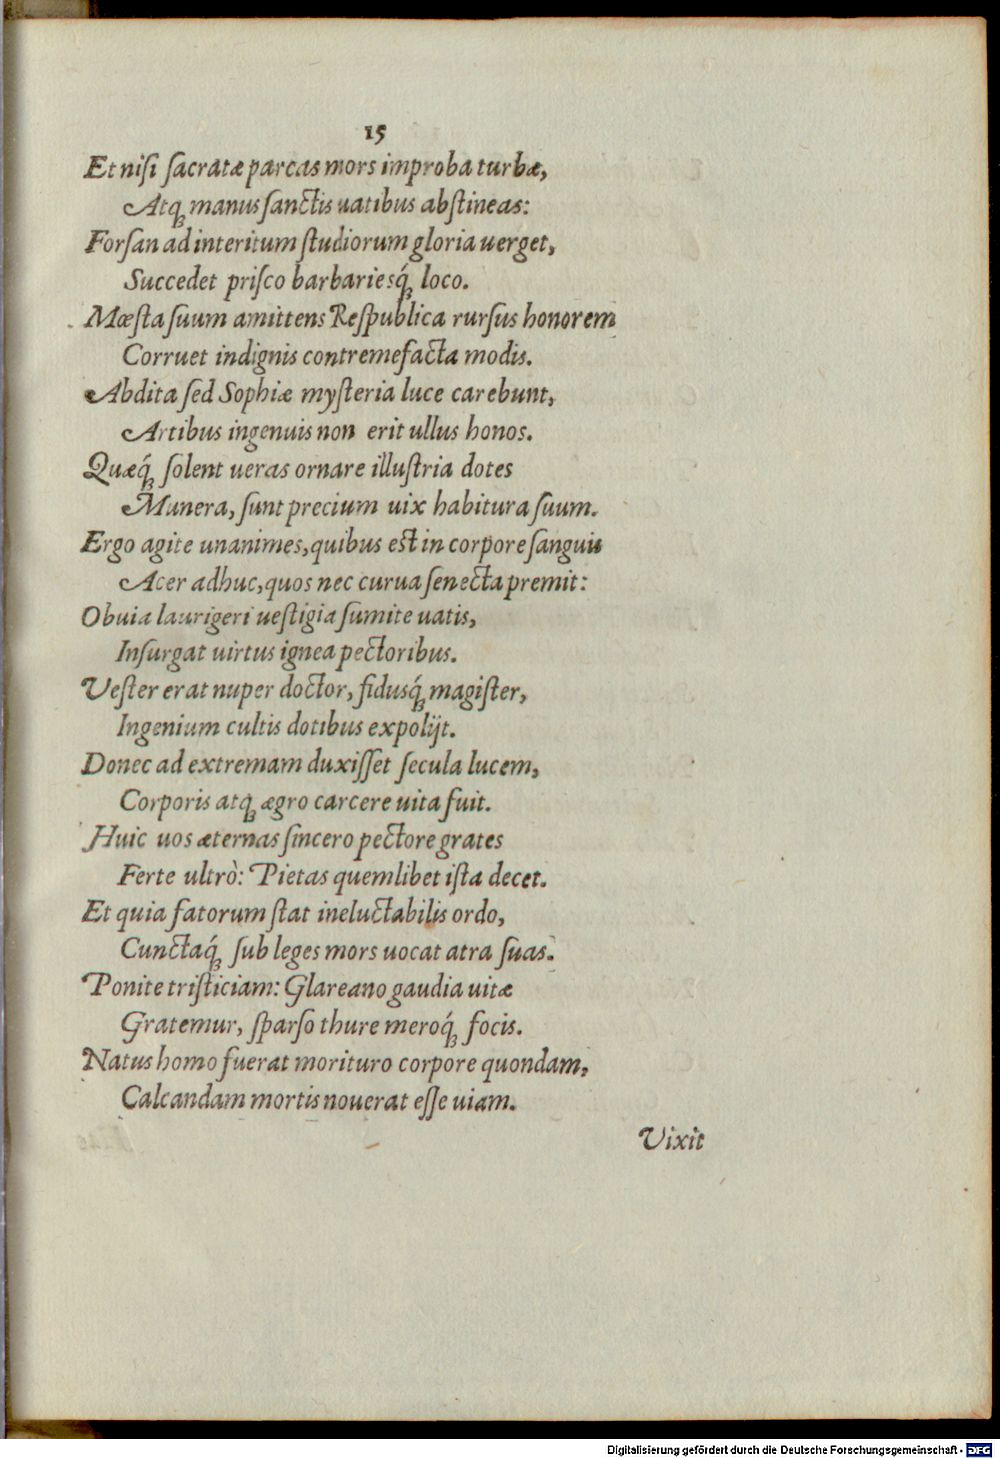 15
Et nisi sacratæ parcas mors improba turbæ,
Atq́ manus sanctis uatibus abstineas:
Forsan ad interitum studiorum gloria uerget,
Succedet prisco barbariesq́ loco.
Mœsta suum amittens Respublica rursus honorem
Corruet indignis contremefacta modis.
Abdita sed Sophiæ mysteria luce carebunt,
Artibus ingenuis non erit ullus honos.
Quæq́ solent ueras ornare illustria dotes
Munera, sunt precium uix habitura suum.
Ergo agite unanimes, quibus est in corpore sanguis
Acer adhuc, quos nec curua senecta premit:
Obuia laurigeri uestigia sumite uatis,
Insurgat uirtus ignea pectoribus.
Vester erat nuper doctor, fidusq́ magister,
Ingenium cultis dotibus expolijt.
Donec ad extremam duxisset secula lucem,
Corporis atq́ ægro carcere uita fuit.
Huic uos æternas sincero pectore grates
Ferte ultrò: Pietas quemlibet ista decet.
Et quia fatorum stat ineluctabilis ordo,
Cunctaq́ sub leges mors uocat atra suas.
Ponite tristiciam: Glareano gaudia uitæ
Gratemur, sparso thure meroq́ focis.
Natus homo fuerat morituro corpore quondam,
Calcandam mortis nouerat esse uiam.
Vixit
Digitalisierung gefördert durch die Deutsche Forschungsgemeinschaft - DFG